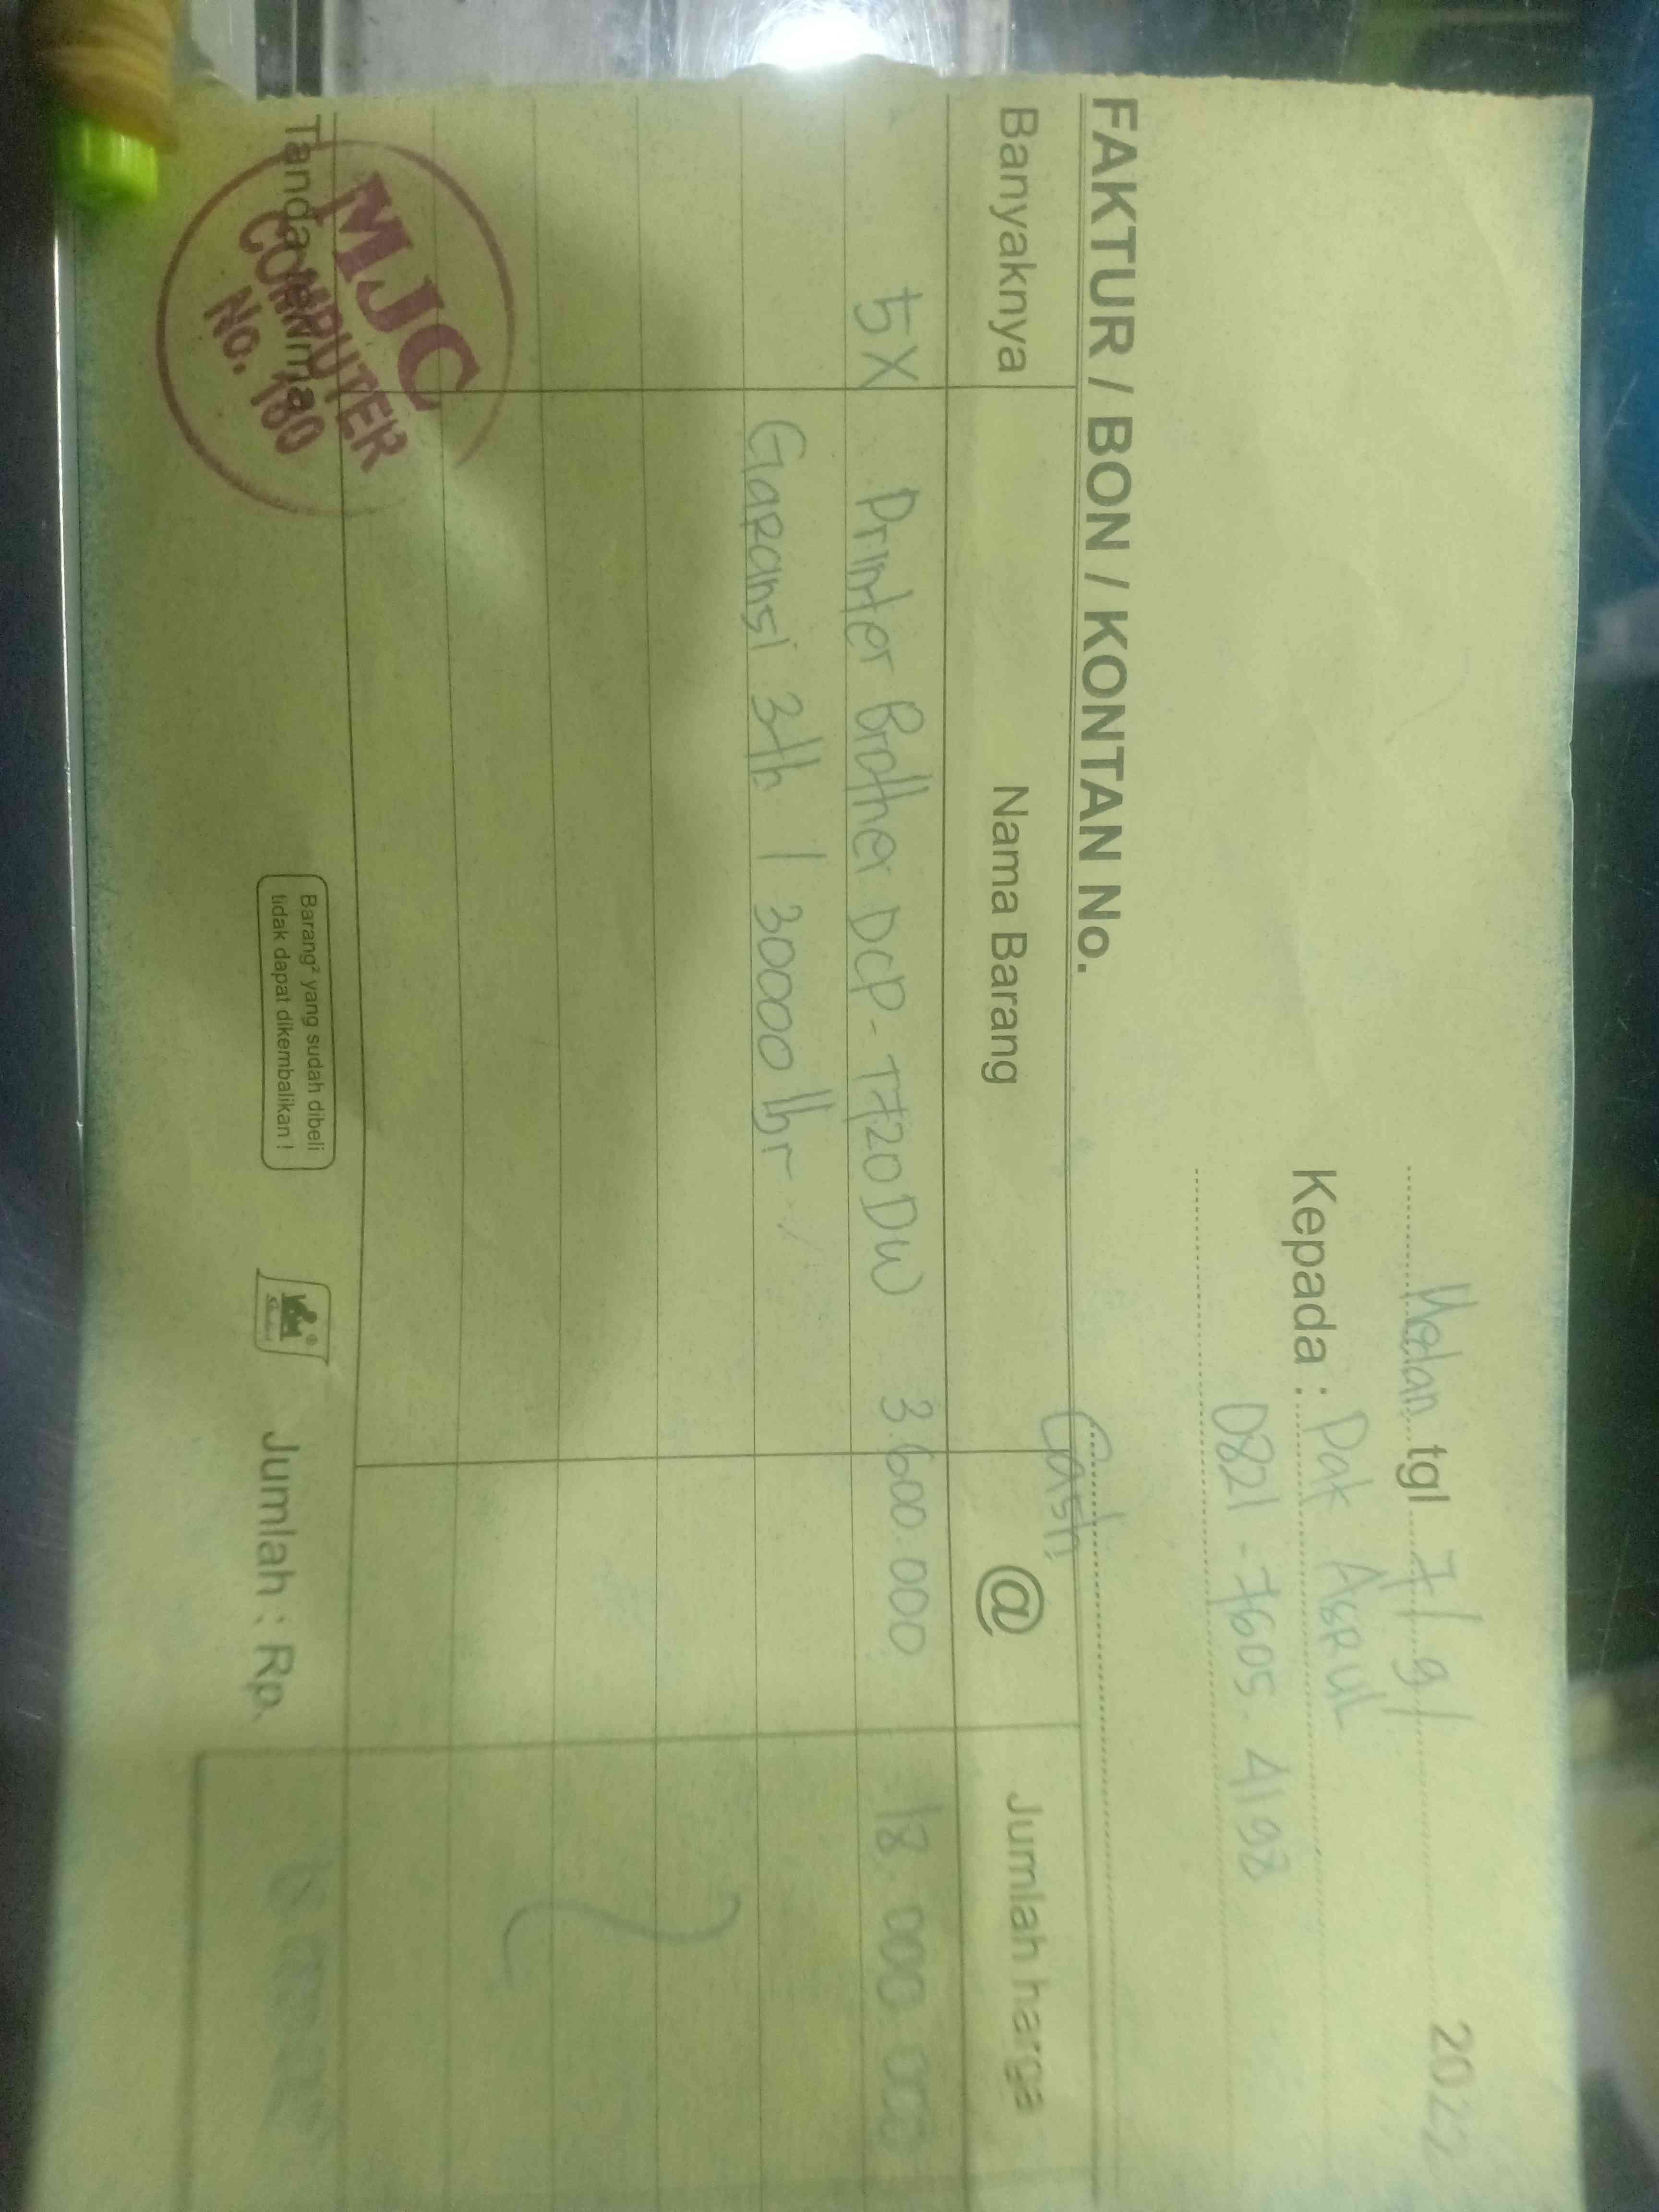 Medan tgl 7/9/ 2022
Kepada : Pak ASRUL
0821-7605-4198
FAKTUR / BON / KONTAN No.
Cash
Banyaknya Nama Barang @ Jumlah harga
5X Printer Brother DCP-T720DW 3.600.000 18.000.000
Garansi 3th / 30000 lbr
Tanda terima
MJC
COMPUTER
No. 180
Barang² yang sudah dibeli
tidak dapat dikembalikan !
Jumlah : Rp.